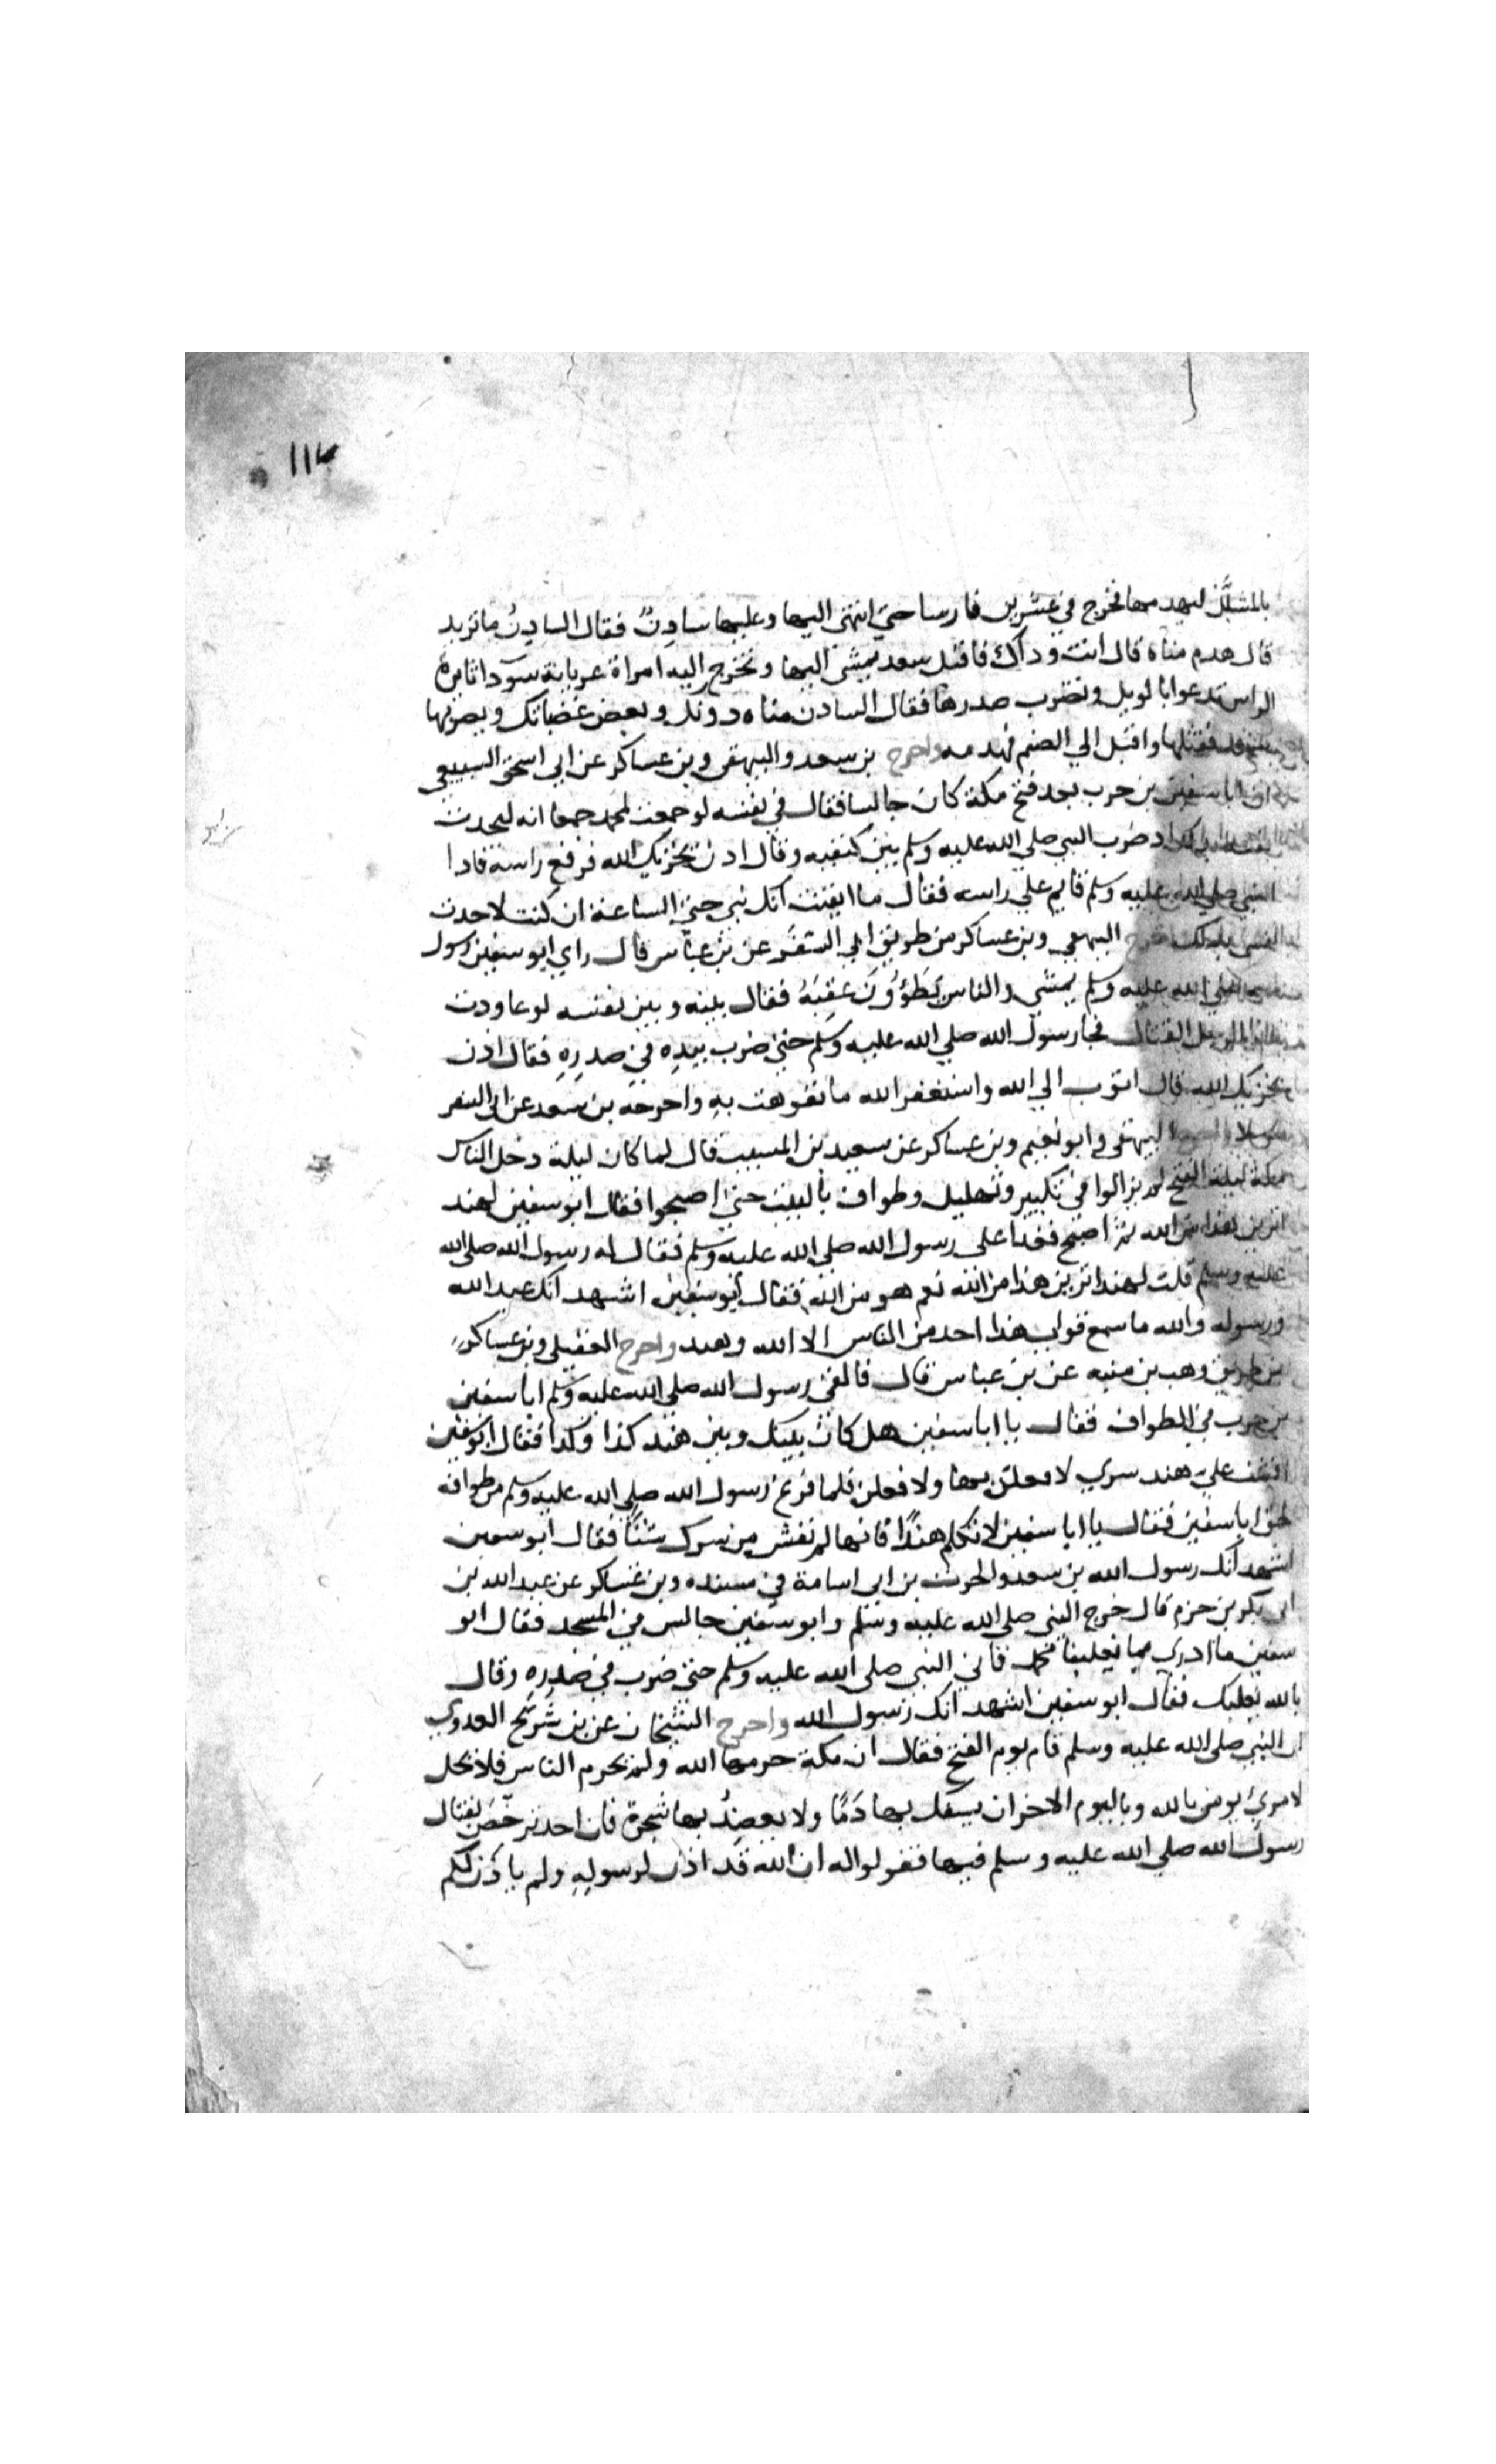 ١١٣
بالمشلَّل ليهدمها فخرج في عشرين فارسا حتي انتهى اليها وعليها سادِنٌ فقال السادِنُ ما تريد
قال هدم مناة قال انت وذاك فاقبل سعد يمشي اليها وتخرج اليه امراة عريانة سودا ثايرة
الراس تدعوا بالويل وتضرب صدرها فقال السادن مناه دونك وبعض غضباتك ويضربها
فقتلها واقبل الي الصنم فهدمه واخرج بن سعد والبيهقي وبن عساكر عن ابي اسحق السبيعي
ان ابا سفين بن حرب بعد فتح مكة كان جالسا فقال في نفسه لو جمعت لمحمد جمعا انه ليحدث
نفسه بذلك اذ ضرب النبي صلي الله عليه وسلم بين كتفيه وقال اذن يخزيك الله فرفع راسه فاذا
النبي صلي الله عليه وسلم قايم علي راسه فقال ما ايقنت انك نبي حتي الساعة ان كنت لاحدث
نفسي بذلك واخرج البيهقي وبن عساكر من طريق ابي السفَر عن بن عباس قال راي ابو سفين رسول
الله صلي الله عليه وسلم يمشي والناس يَطَؤُونَ عَقِبَهُ فقال بينه وبين نفسه لو عاودت
هذا الرجل القتال فجا رسول الله صلي الله عليه وسلم حتي ضرب بيدِهِ في صدرِهِ فقال اذن
يخزيك الله قال اتوب الي الله واستغفر الله ما تفوهت بهِ واخرجه بن سعد عن ابي السفر
مرسلا واخرج البيهقي وابو نعيم وبن عساكر عن سعيد بن المسيب قال لما كان ليلة دخل الناس
مكة ليلة الفتح لم يزالوا في تكبير وتهليل وطواف بالبيت حتي اصبحوا فقال ابو سفين لهند
اترين هذا من الله ثم اصبح فغدا على رسول الله صلى الله عليه وسلم فقال له رسول الله صلى الله
عليه وسلم قلت لهند اترين هذا من الله نعم هو من الله فقال ابو سفين اشهد انك عبد الله
ورسوله والله ما سمع قولي هذا احد من الناس الا الله وهند واخرج العقيلي وبن عساكر
من طريق وهب بن منبه عن بن عباس قال فالقى رسول الله صلي الله عليه وسلم ابا سفين
بن حرب في الطواف فقال يا ابا سفين هل كان بينك وبين هند كذا وكذا فقال ابو سفين
افشت علي هند سري لافعلن بها ولافعلن فلما فرغ رسول الله صلي الله عليه وسلم من طوافه
لحق ابا سفين فقال يا ابا سفين لا تكلم هندًا فانها لم تفش من سرك شئًا فقال ابو سفين
اشهد انك رسول الله بن سعد والحرث بن ابي اسامة في مسنده وبن عساكر عن عبد الله بن
ابي بكر بن حزم قال خرج النبي صلي الله عليه وسلم وابو سفين جالس في المسجد فقال ابو
سفين ما ادري بما يغلبنا محمد فاتي النبي صلي الله عليه وسلم حتي ضرب في صدرِهِ وقال
بالله يغلبك فقال ابو سفين اشهد انك رسول الله واخرج الشيخان عن بن شُرَيح العدوي
ان النبي صلى الله عليه وسلم قام يوم الفتح فقال ان مكة حرمها الله ولم يحرم الناس فلا يحل
لامرئ يومن بالله وباليوم الاخر ان يسفك بها دَمًا ولا يعضِدُ بها شجرة فان احد ترخّص بقتال
رسول الله صلي الله عليه وسلم فيها فقولوا له ان الله قد اذن لرسولِهِ ولم ياذن لكم